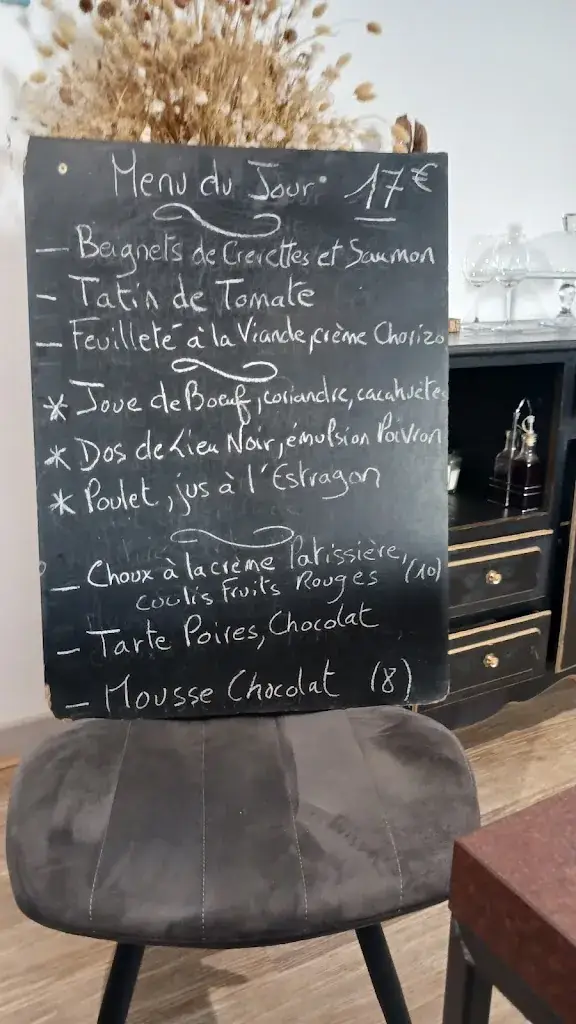 Menu du Jour 17€
- Beignets de Crevettes et Saumon
- Tatin de Tomate
- Feuilleté à la Viande, crème Chorizo
* Joue de Boeuf, coriandre, cacahuetes
* Dos de Lieu Noir, émulsion Poivron
* Poulet, jus à l'Estragon
- Choux à la crème Patissière,
coulis Fruits Rouges (10)
- Tarte Poires, Chocolat
- Mousse Chocolat (8)